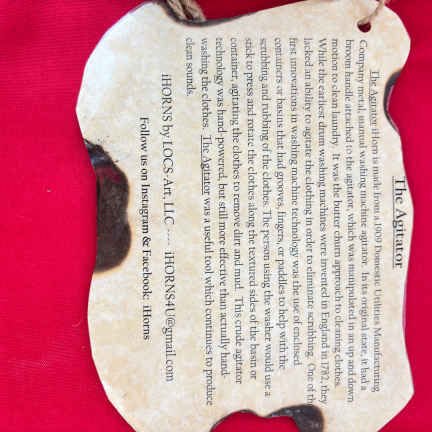 The Agitator
The Agitator iHorn is made from a 1909 Domestic Utilities Manufacturing
Company metal, manual washing machine agitator. In its original state, it had a
broom handle attached to the agitator, which was manipulated in an up and down
motion to clean laundry. It was the butter churn approach to cleaning clothes.
While the earliest drum washing machines were invented in England in 1782, they
lacked an ability to agitate the clothing in order to eliminate scrubbing. One of the
first innovations in washing machine technology was the use of enclosed
containers or basins that had grooves, fingers, or paddles to help with the
scrubbing and rubbing of the clothes. The person using the washer would use a
stick to press and rotate the clothes along the textured sides of the basin or
container, agitating the clothes to remove dirt and mud. This crude agitator
technology was hand-powered, but still more effective than actually hand-
washing the clothes. The Agitator was a useful tool which continues to produce
clean sounds.
iHORNS by LOCS-Art, LLC ---- iHORNS4U@gmail.com
Follow us on Instagram & Facebook: iHorns